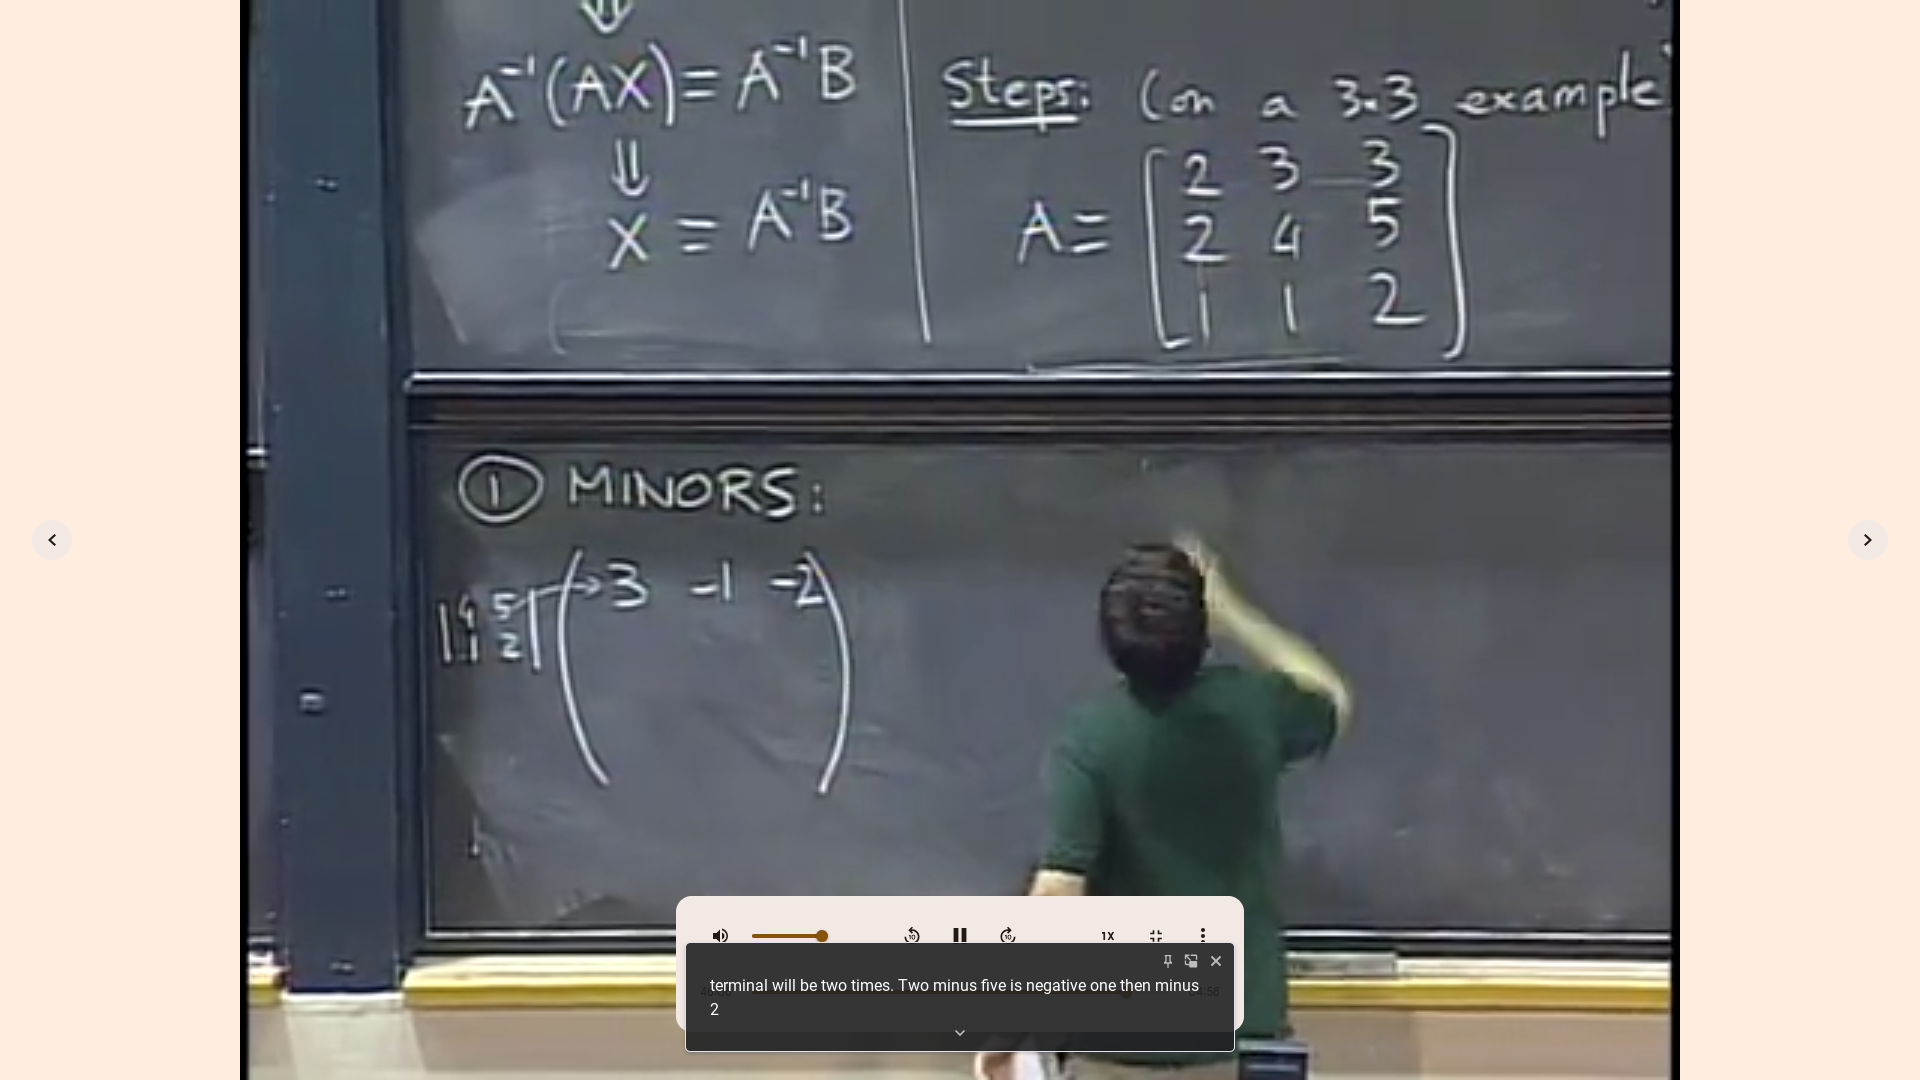 A⁻¹(AX) = A⁻¹B
⇓
X = A⁻¹B
Steps: (on a 3×3 example)
A = [2 3 3
2 4 5
1 1 2]
① MINORS:
|4 5
1 2| → (3 -1 -2)
1X
terminal will be two times. Two minus five is negative one then minus
2